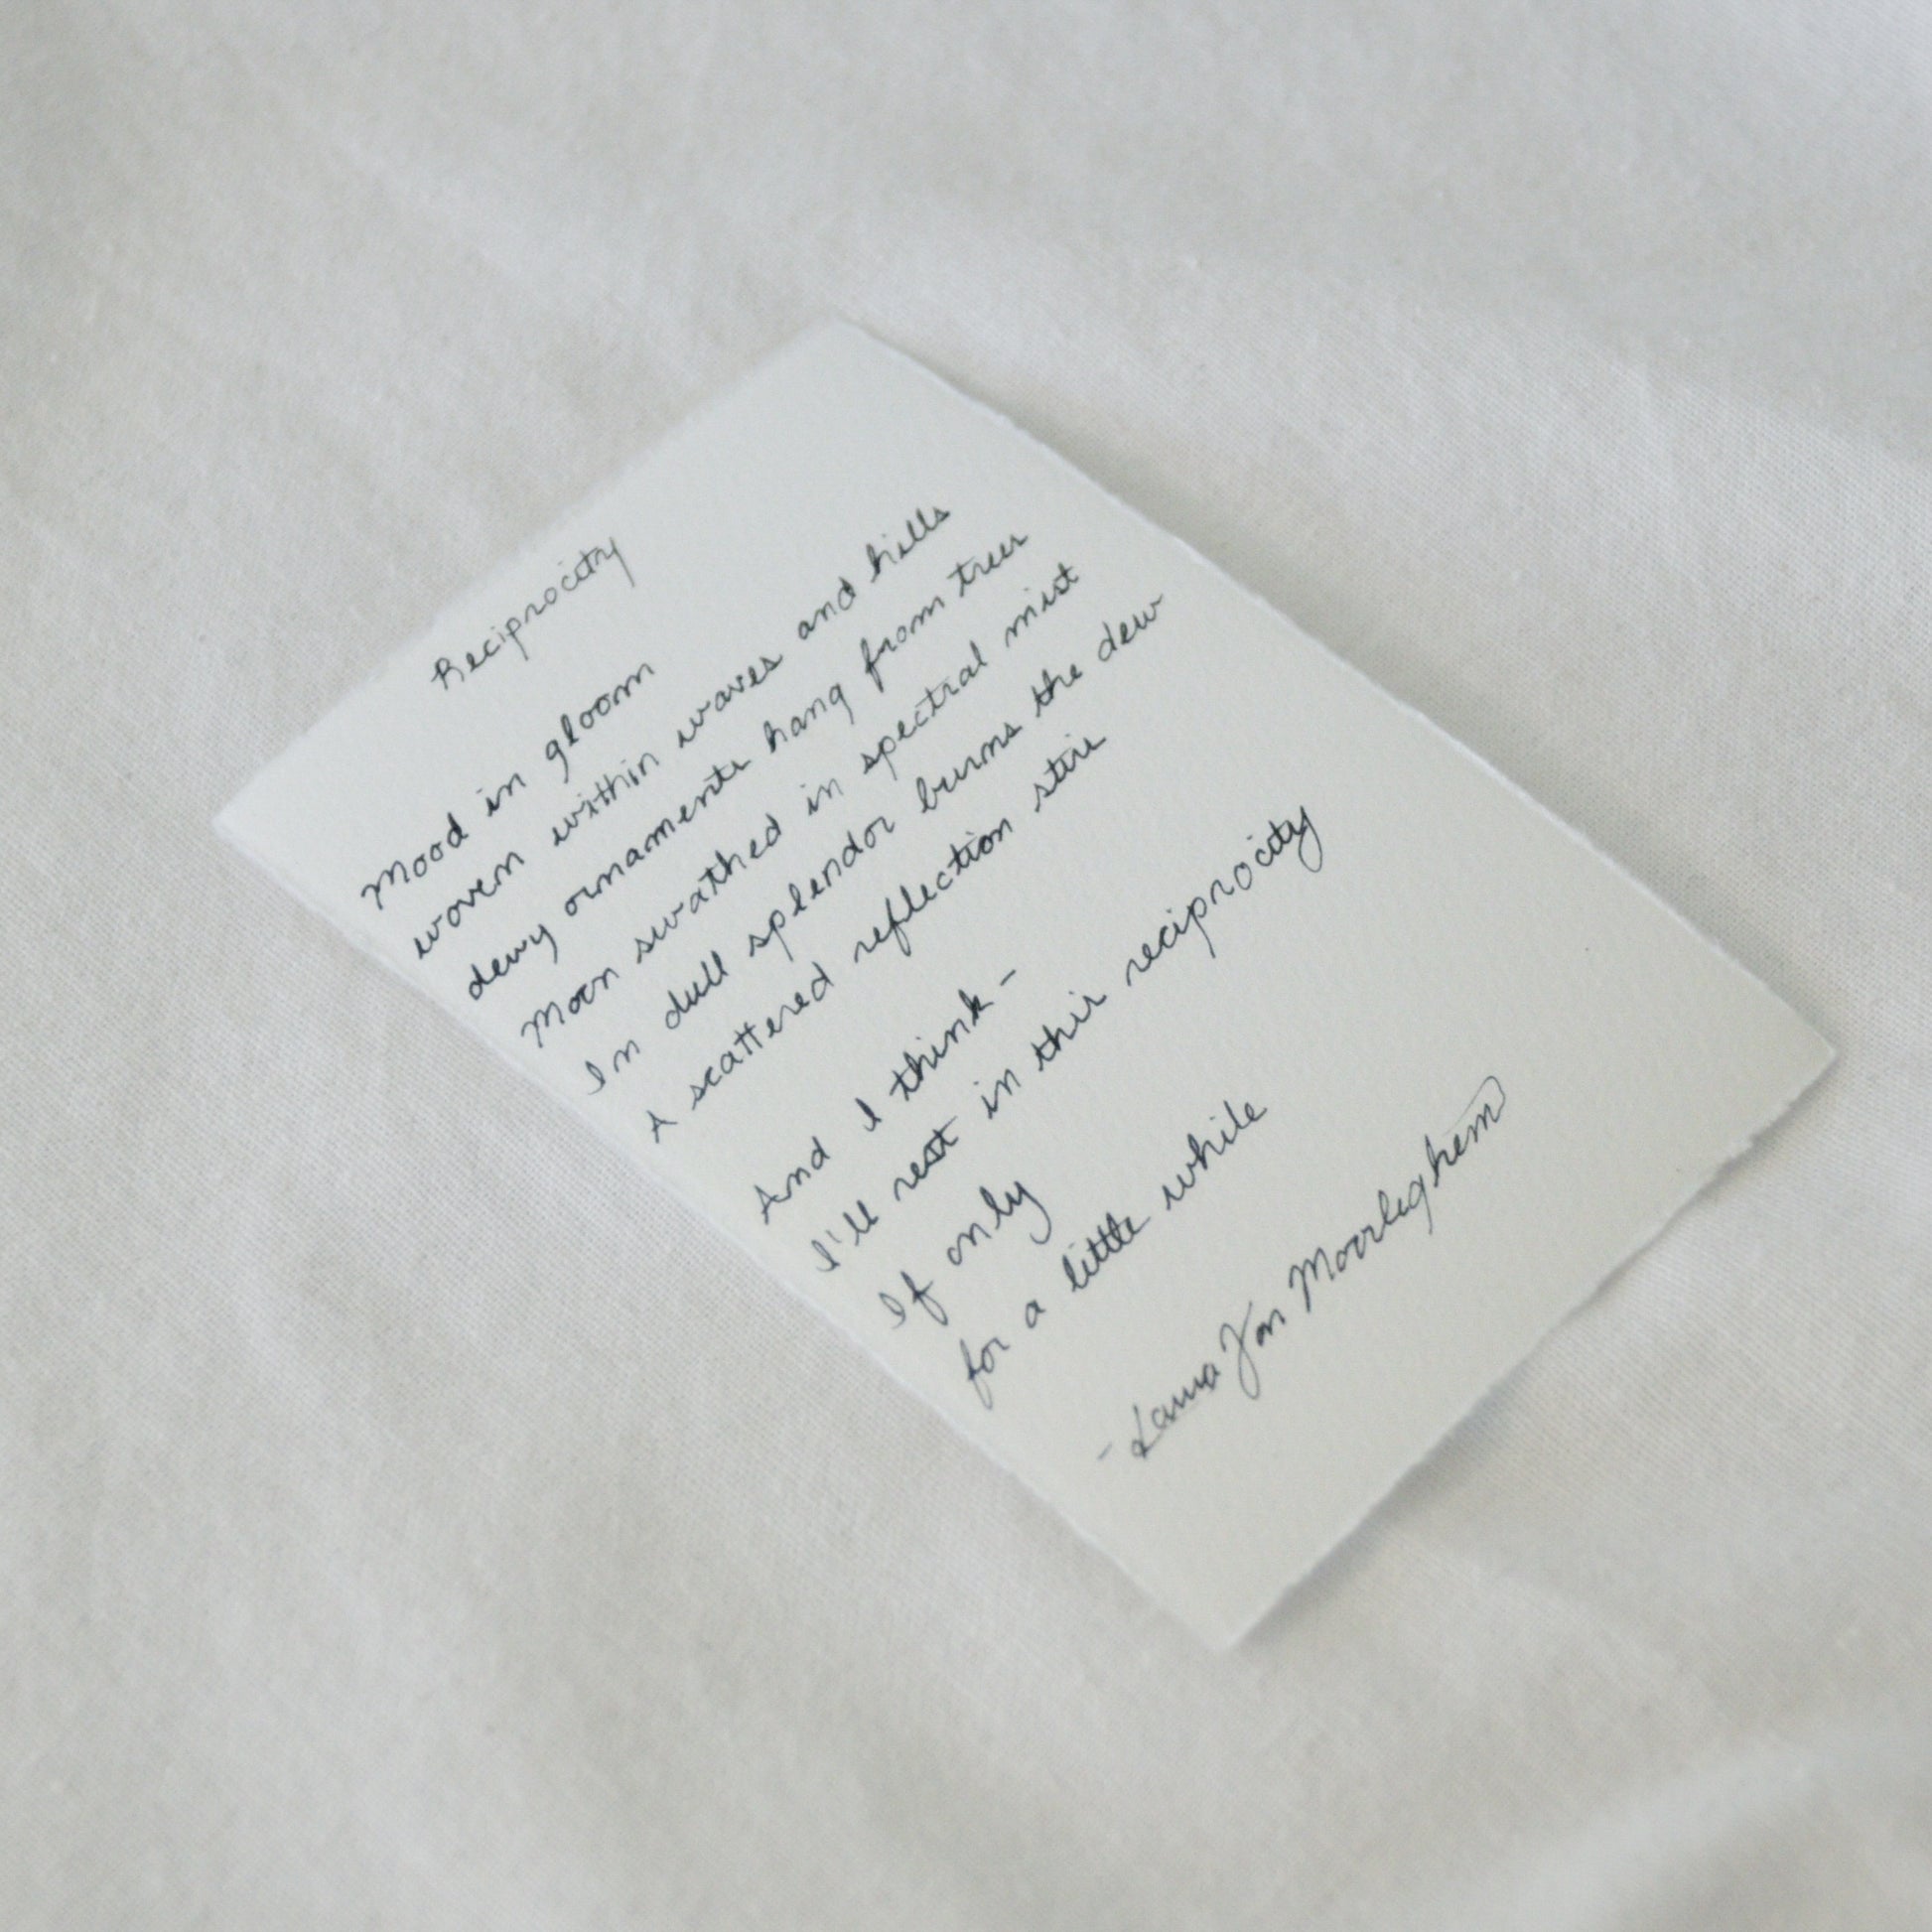 Reciprocity
Mood in gloom
woven within waves and hills
dewy ornaments hang from trees
Moon swathed in spectral mist
In dull splendor burns the dew
A scattered reflection stirs
And I think -
I'll rest in this reciprocity
If only
for a little while
- Laura Van Moorleghem